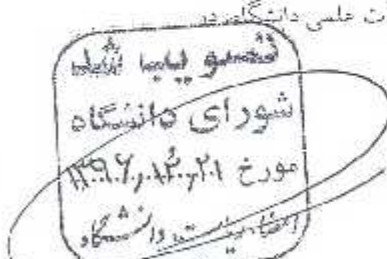 ت علمی دانشگاه در
تصویب شد
شورای دانشگاه
مورخ ۱۳۹۶,۱۲,۲۱
امضا ریاست دانشگاه